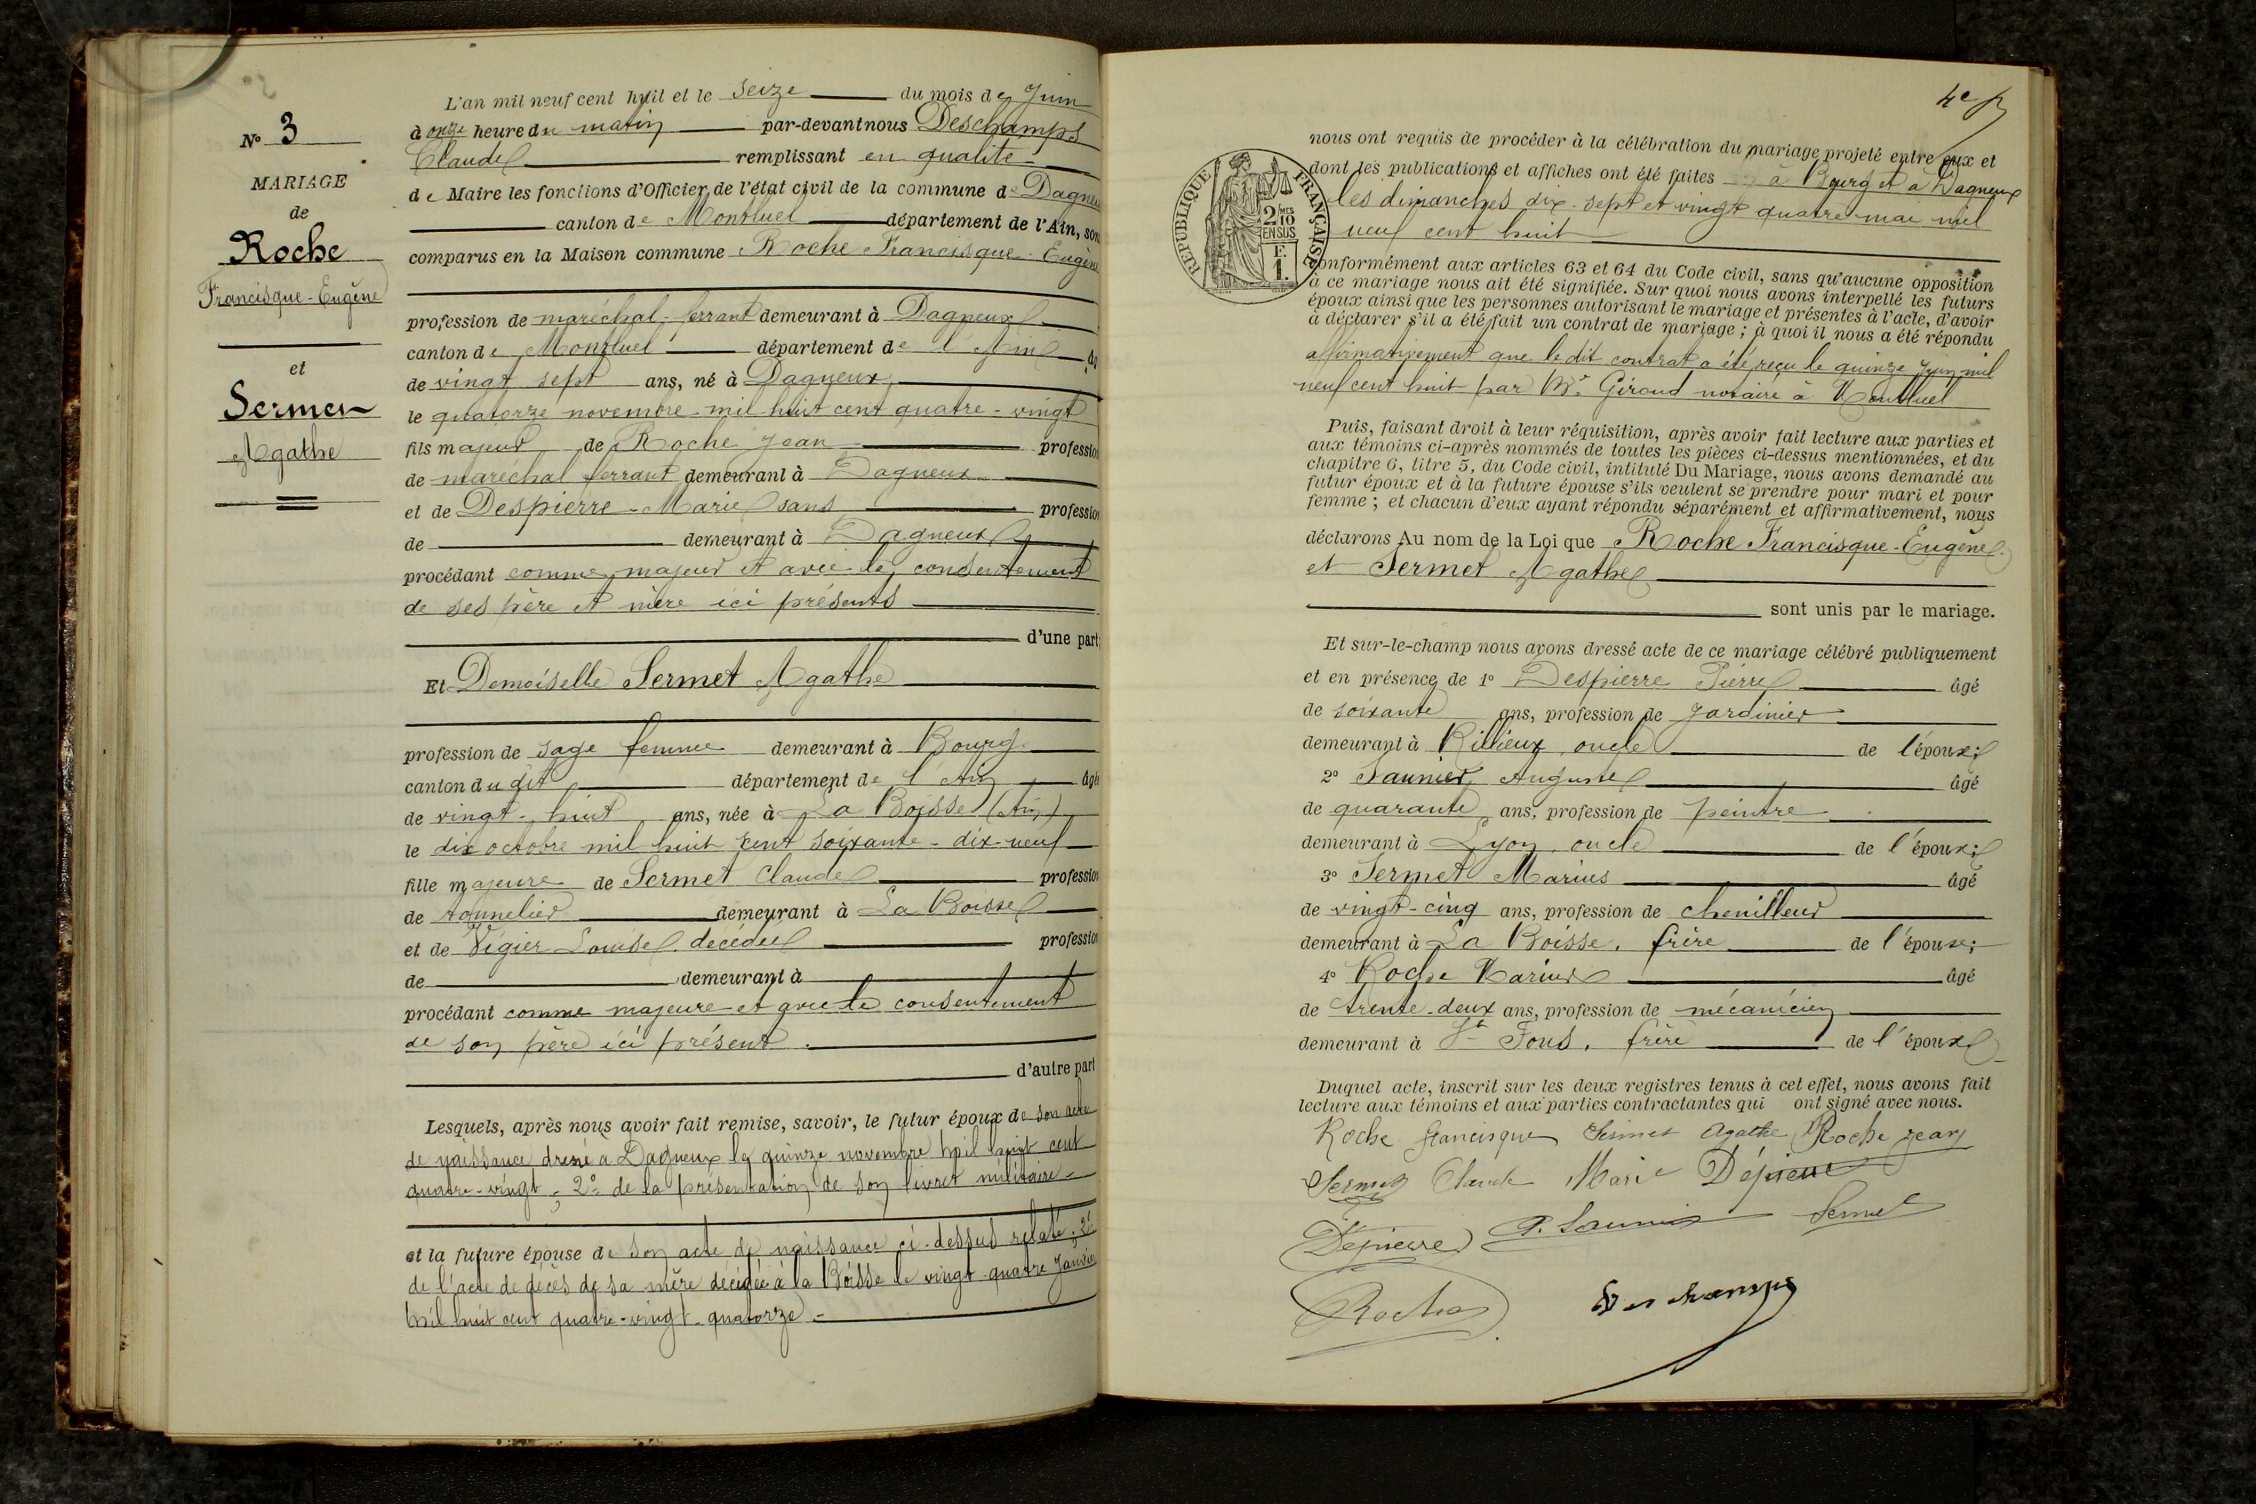 N° 3
MARIAGE
de
Roche
Francisque-Eugène
et
Sermet
Agathe
L'an mil neuf cent huit et le seize du mois de Juin
à onze heure du matin par-devant nous Deschamps
Claude remplissant en qualité
de Maire les fonctions d'Officier de l'état civil de la commune de Dagneux
canton de Montluel département de l'Ain, sont
comparus en la Maison commune Roche Francisque-Eugène
profession de maréchal-ferrant demeurant à Dagneux
canton de Montluel département de l'Ain âgé
de vingt sept ans, né à Dagneux,
le quatorze novembre mil huit cent quatre-vingt
fils majeur de Roche Jean profession
de maréchal ferrant demeurant à Dagneux
et de Despierre Marie sans profession
de demeurant à Dagneux
procédant comme majeur et avec le consentement
de ses père et mère ici présents
d'une part
Et Demoiselle Sermet Agathe
profession de sage femme demeurant à Bourg
canton du dit département de l'Ain âgée
de vingt-huit ans, née à La Boisse (Ain)
le dix octobre mil huit cent soixante-dix-neuf
fille majeure de Sermet Claude profession
de tonnelier demeurant à La Boisse
et de Végier Louise décédée profession
de demeurant à
procédant comme majeure et avec le consentement
de son père ici présent.
d'autre part
Lesquels, après nous avoir fait remise, savoir, le futur époux de son acte
de naissance dressé à Dagneux le quinze novembre mil huit cent
quatre-vingt; 2° de la présentation de son livret militaire
et la future épouse de son acte de naissance ci-dessus relaté; 2°
de l'acte de décès de sa mère décédée à la Boisse le vingt-quatre Janvier
mil huit cent quatre-vingt-quatorze.
nous ont requis de procéder à la célébration du mariage projeté entre eux et
dont les publications et affiches ont été faites à Bourg et à Dagneux
les dimanches dix-sept et vingt quatre mai mil
neuf cent huit
RÉPUBLIQUE FRANÇAISE
2 MES
10
EN SUS
F.
1.
conformément aux articles 63 et 64 du Code civil, sans qu'aucune opposition
à ce mariage nous ait été signifiée. Sur quoi nous avons interpellé les futurs
époux ainsi que les personnes autorisant le mariage et présentes à l'acte, d'avoir
à déclarer s'il a été fait un contrat de mariage; à quoi il nous a été répondu
affirmativement que le dit contrat a été reçu le quinze Juin mil
neuf cent huit par Me Géroud notaire à Montluel
Puis, faisant droit à leur réquisition, après avoir fait lecture aux parties et
aux témoins ci-après nommés de toutes les pièces ci-dessus mentionnées, et du
chapitre 6, titre 5, du Code civil, intitulé Du Mariage, nous avons demandé au
futur époux et à la future épouse s'ils veulent se prendre pour mari et pour
femme; et chacun d'eux ayant répondu séparément et affirmativement, nous
déclarons Au nom de la Loi que Roche Francisque-Eugène
et Sermet Agathe
sont unis par le mariage.
Et sur-le-champ nous avons dressé acte de ce mariage célébré publiquement
et en présence de 1° Despierre Pierre âgé
de soixante ans, profession de Jardinier
demeurant à Rillieux oncle de l'époux;
2° Saunier Auguste âgé
de quarante ans, profession de peintre
demeurant à Lyon, oncle de l'époux;
3° Sermet Marius âgé
de vingt-cinq ans, profession de chenilleur
demeurant à La Boisse, frère de l'épouse;
4° Roche Marius âgé
de trente-deux ans, profession de mécanicien
demeurant à St Fons, frère de l'époux
Duquel acte, inscrit sur les deux registres tenus à cet effet, nous avons fait
lecture aux témoins et aux parties contractantes qui ont signé avec nous.
Roche francisque Sermet Agathe Roche jean
Sermet Claude Marie Dépierre
Dépierre A. Saunier Sermet
Roche Deschamps